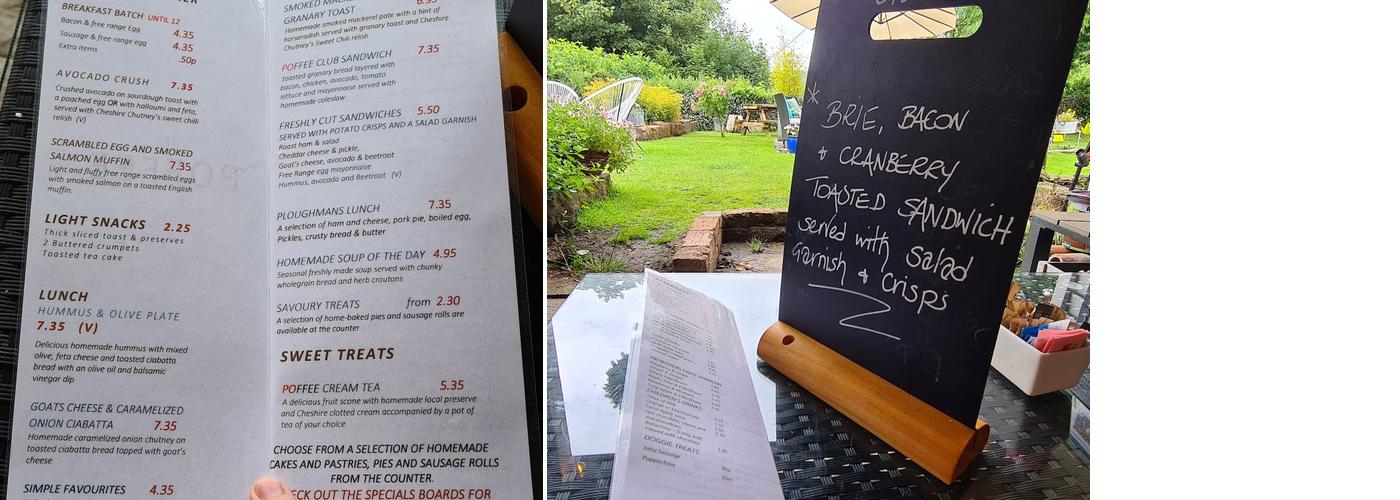 BREAKFAST BATCH UNTIL 12
Bacon & free range Egg 4.35
Sausage & free range egg 4.35
Extra items .50p
AVOCADO CRUSH 7.35
Crushed avocado on sourdough toast with
a poached egg OR with halloumi and feta,
served with Cheshire Chutney's sweet chilli
relish (V)
SCRAMBLED EGG AND SMOKED
SALMON MUFFIN 7.35
Light and fluffy free range scrambled eggs
with smoked salmon on a toasted English
muffin.
LIGHT SNACKS 2.25
Thick sliced toast & preserves
2 Buttered crumpets
Toasted tea cake
LUNCH
HUMMUS & OLIVE PLATE
7.35 (V)
Delicious homemade hummus with mixed
olive, feta cheese and toasted ciabatta
bread with an olive oil and balsamic
vinegar dip
GOATS CHEESE & CARAMELIZED
ONION CIABATTA 7.35
Homemade caramelized onion chutney on
toasted ciabatta bread topped with goat's
cheese
SIMPLE FAVOURITES 4.35
GRANARY TOAST
Homemade smoked mackerel pate with a hint of
horseradish served with granary toast and Cheshire
Chutney's Sweet Chili relish
POFFEE CLUB SANDWICH 7.35
toasted granary bread layered with
bacon, chicken, avocado, tomato
lettuce and mayonnaise served with
homemade coleslaw
FRESHLY CUT SANDWICHES 5.50
SERVED WITH POTATO CRISPS AND A SALAD GARNISH
Roast ham & salad
Cheddar cheese & pickle,
Goat's cheese, avocado & beetroot
Free Range egg mayonnaise
Hummus, avocado and Beetroot (V)
PLOUGHMANS LUNCH 7.35
A selection of ham and cheese, pork pie, boiled egg,
Pickles, crusty bread & butter
HOMEMADE SOUP OF THE DAY 4.95
Seasonal freshly made soup served with chunky
wholegrain bread and herb croutons
SAVOURY TREATS from 2.30
A selection of home-baked pies and sausage rolls are
available at the counter
SWEET TREATS
POFFEE CREAM TEA 5.35
A delicious fruit scone with homemade local preserve
and Cheshire clotted cream accompanied by a pot of
tea of your choice
CHOOSE FROM A SELECTION OF HOMEMADE
CAKES AND PASTRIES, PIES AND SAUSAGE ROLLS
FROM THE COUNTER.
ECK OUT THE SPECIALS BOARDS FOR
* BRIE, BACON
+ CRANBERRY
TOASTED SANDWICH
served with Salad
Garnish + Crisps
CHILDREN'S DRINKS
DOGGIE TREATS
Juicy Sausage
Puppuchino